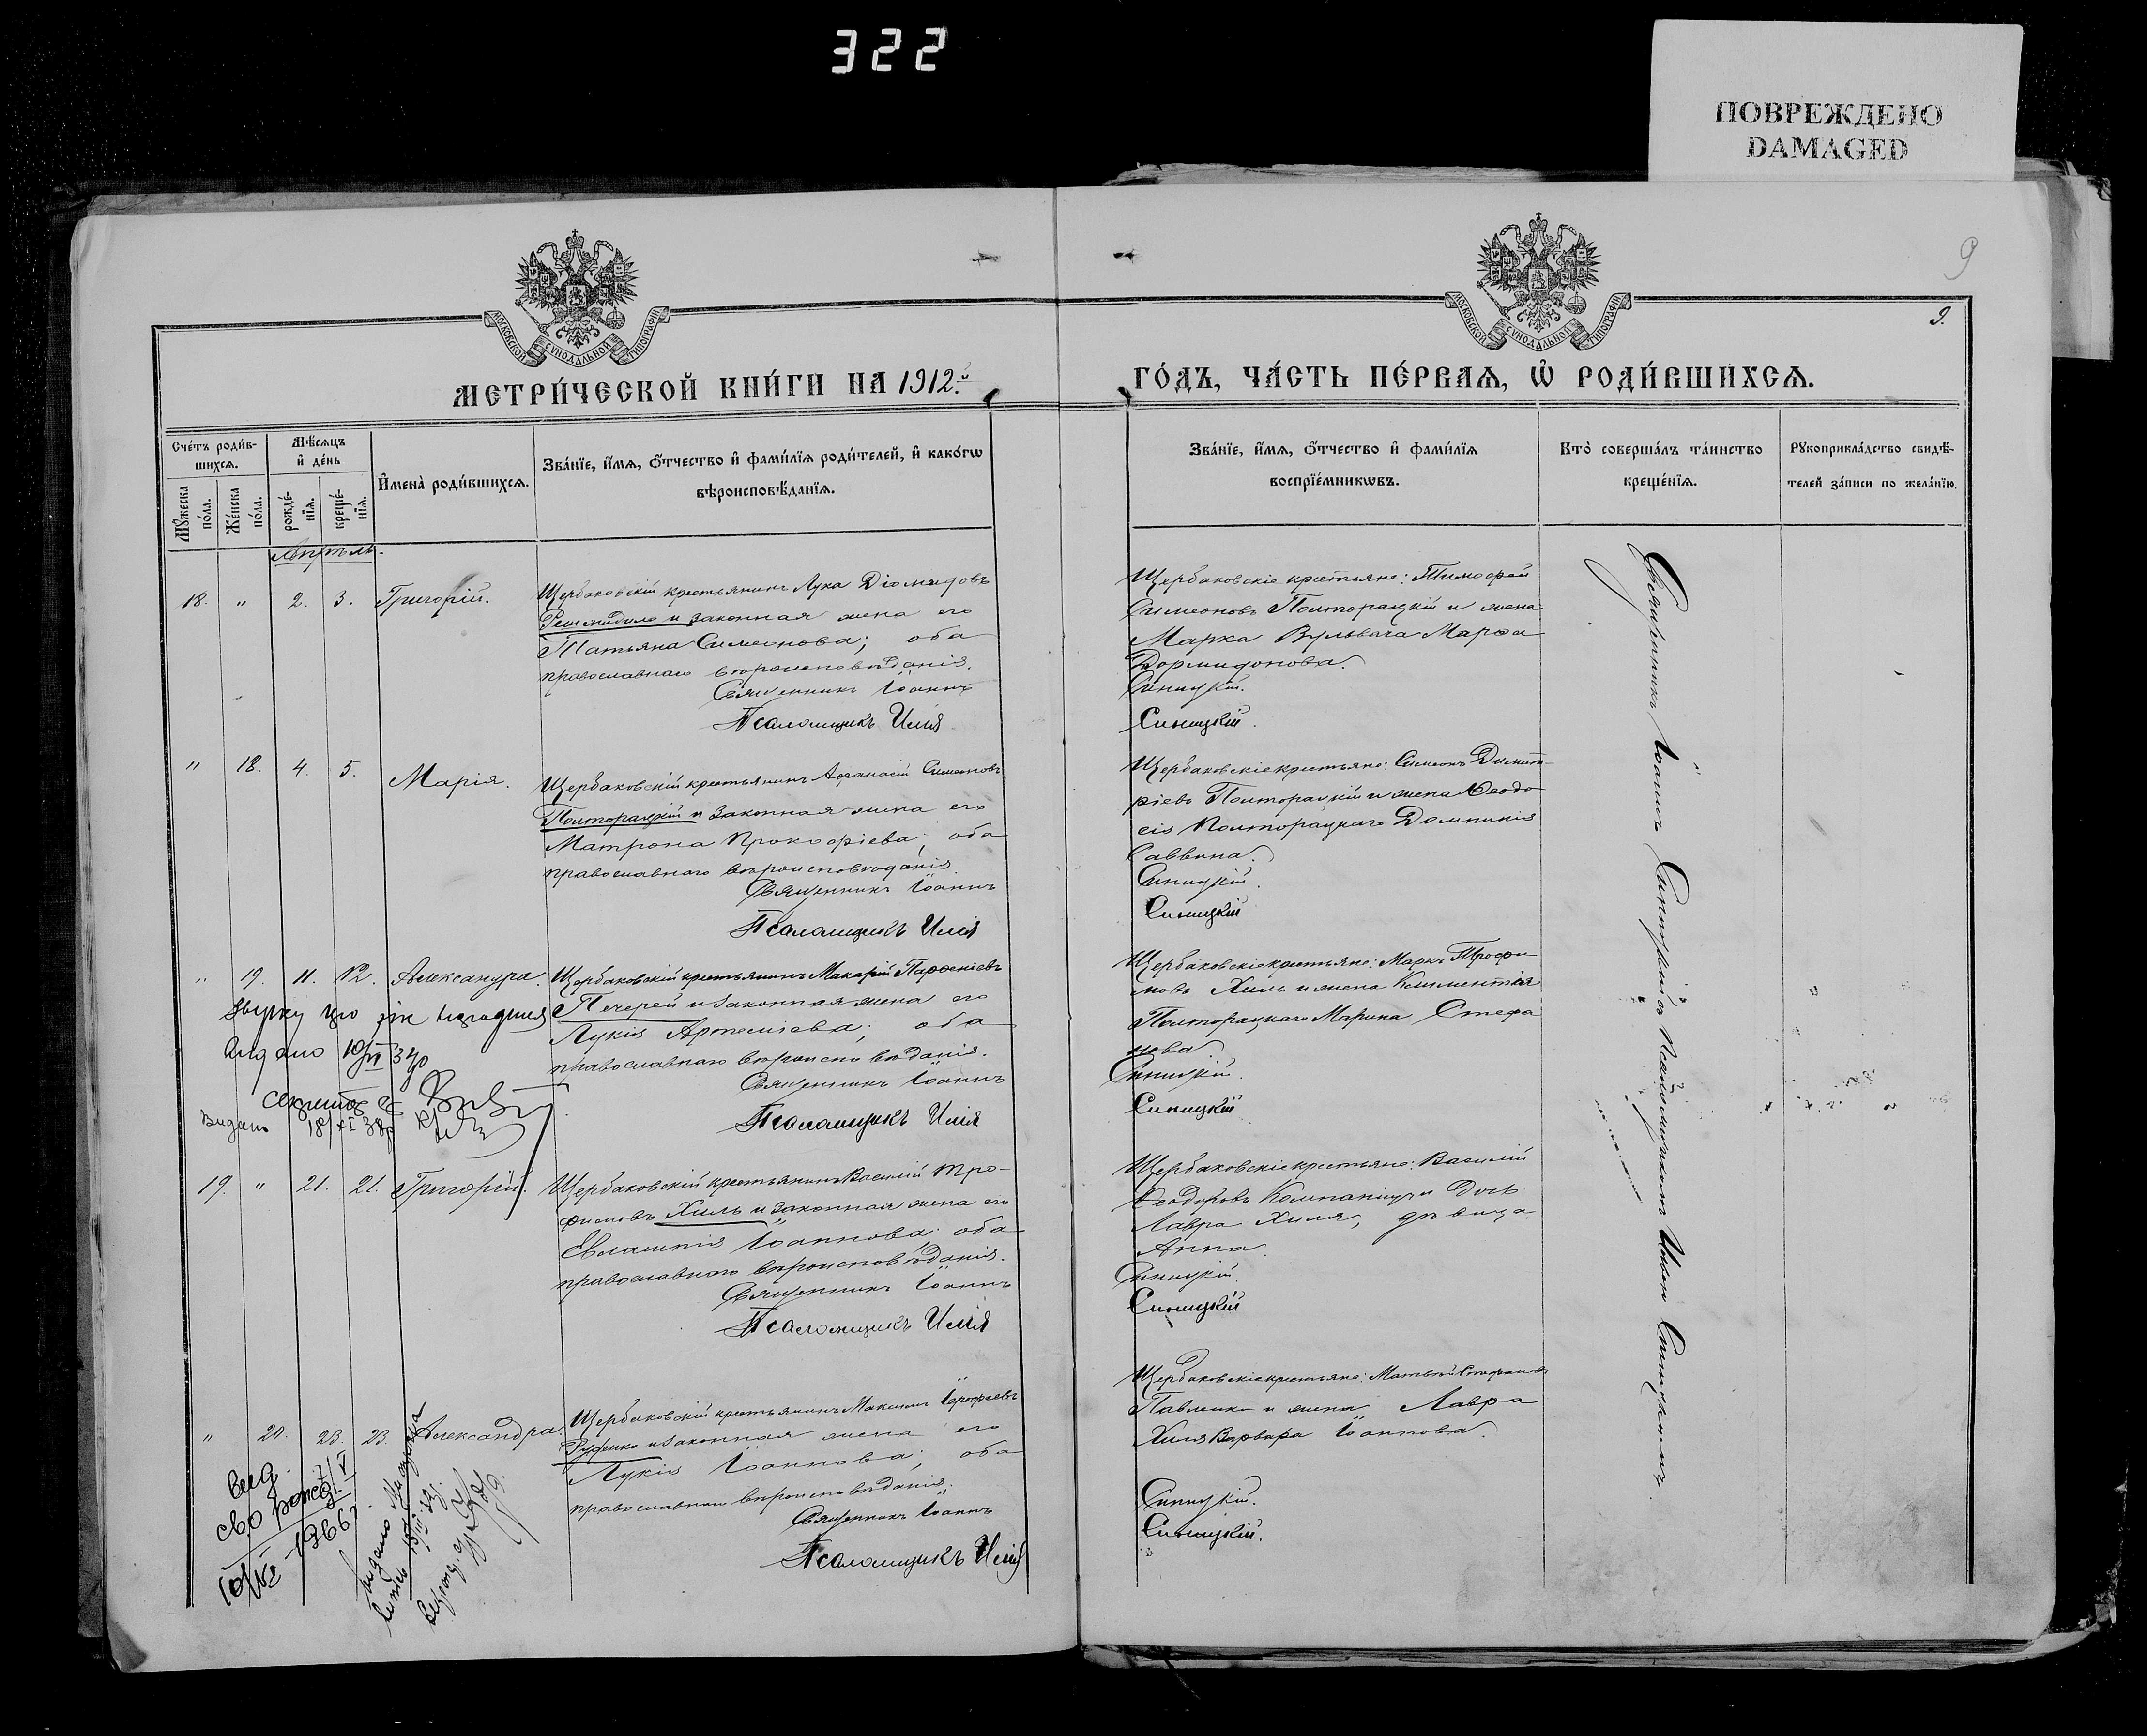 322
ПОВРЕЖДЕНО
DAMAGED
9
9.
МОСКОВСКОЙ СѴНОДАЛЬНОЙ ТИПОГРАФІИ
МОСКОВСКОЙ СѴНОДАЛЬНОЙ ТИПОГРАФІИ
МЕТРИ́ЧЕСКОЙ КНИ́ГИ НА 1912й
ГО́ДЪ, ЧА́СТЬ ПЕ́РВАѦ, Ѡ҆ РОДИ́ВШИХСѦ.
Сче́тъ роди́в-
шихсѧ.
Мѣ́сѧцъ
и҆ де́нь
Мꙋ́жеска
по́ла.
Же́нска
по́ла.
рожде́-
нїѧ.
креще́-
нїѧ.
И҆мена̀ роди́вшихсѧ.
Зва́нїе, и҆́мѧ, ѻ҆́тчество и҆ фами́лїѧ роди́телей, и҆ како́гѡ
вѣроисповѣ́данїѧ.
Зва́нїе, и҆́мѧ, ѻ҆́тчество и҆ фами́лїѧ
воспрїе́мникѡвъ.
Кто̀ соверша́лъ та́инство
креще́нїѧ.
Рꙋкоприкла́дство свидѣ́-
телей за́писи по жела́нїю.
Апрѣль.
18. " 2. 3. Григорій.
Щербаковскій крестьянинъ Лука Діомидовъ
и законная жена его
Татьяна Симеонова; оба
православнаго вѣроисповѣданія.
Священникъ Іоаннъ
Псаломщикъ Илія
Щербаковскіе крестьяне: Тимофей
Симеоновъ Полторацкій и жена
Марка Вульвача Марѳа
Дормидонова.
Синицкій.
Синицкій.
" 18. 4. 5. Марія.
Щербаковскій крестьянинъ Аѳанасій Симеоновъ
Полторацкій и законная жена его
Матрона Прокофіева; оба
православнаго вѣроисповѣданія.
Священникъ Іоаннъ
Псаломщикъ Илія
Щербаковскіе крестьяне: Симеонъ Димит-
ріевъ Полторацкій и жена Ѳеодо
сія Полторацкаго Домникія
Саввина.
Синицкій.
Синицкій
" 19. 11. 12. Александра.
Щербаковскій крестьянинъ Макарій Парѳеніевъ
Печерей и законная жена его
Лукія Артеміева; оба
православнаго вѣроисповѣданія.
Священникъ Іоаннъ
Псаломщикъ Илія
Щербаковскіе крестьяне: Маркъ Трофи
мовъ Хиль и жена Климентія
Полторацкаго Марина Стефа
нова.
Синицкій.
Синицкій
Видано
Видано 18/XI 38р
19. " 21. 21. Григорій.
Щербаковскій крестьянинъ Василій Тро-
фимовъ Хиль и законная жена его
Евлампія Іоаннова; оба
православнаго вѣроисповѣданія.
Священникъ Іоаннъ
Псаломщикъ Илія
Щербаковскіе крестьяне: Василій
Ѳеодоровъ и дочь
Лавра Хиля, дѣвица
Анна.
Синицкій.
Синицкій
" 20. 23. 23. Александра.
Щербаковскій крестьянинъ Максимъ Іерофеевъ
Руденко и законная жена его
Лукія Іоаннова; оба
православнаго вѣроисповѣданія.
Священникъ Іоаннъ
Псаломщикъ Илія
Щербаковскіе крестьяне: Матвѣй Стефановъ
Павленко и жена Лавра
Хиля Варвара Іоаннова.
Синицкій.
Синицкій.
Вид.
сво рожд
Священникъ Іоаннъ Синицкій съ Псаломщикомъ Иліею Синицкимъ.